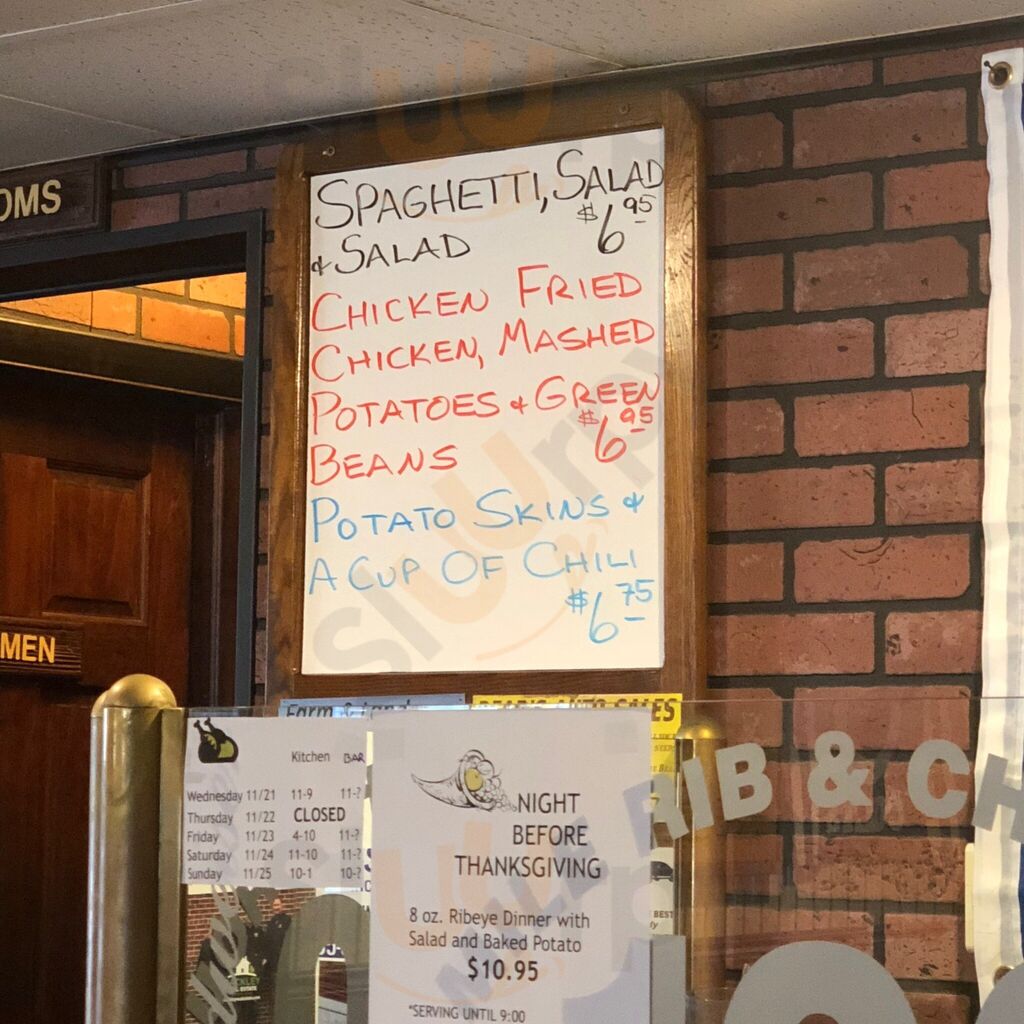 OMS
SPAGHETTI, SALAD
& SALAD $6.95
CHICKEN FRIED
CHICKEN, MASHED
POTATOES & GREEN
BEANS $6.95
POTATO SKINS &
A CUP OF CHILI
$6.75
MEN
Farm &
SALES
Kitchen BAR
Wednesday 11/21 11-9 11-?
Thursday 11/22 CLOSED
Friday 11/23 4-10 11-?
Saturday 11/24 11-10 11-?
Sunday 11/25 10-1 10-?
NIGHT
BEFORE
THANKSGIVING
8 oz. Ribeye Dinner with
Salad and Baked Potato
$10.95
*SERVING UNTIL 9:00
RIB & CH
BEST